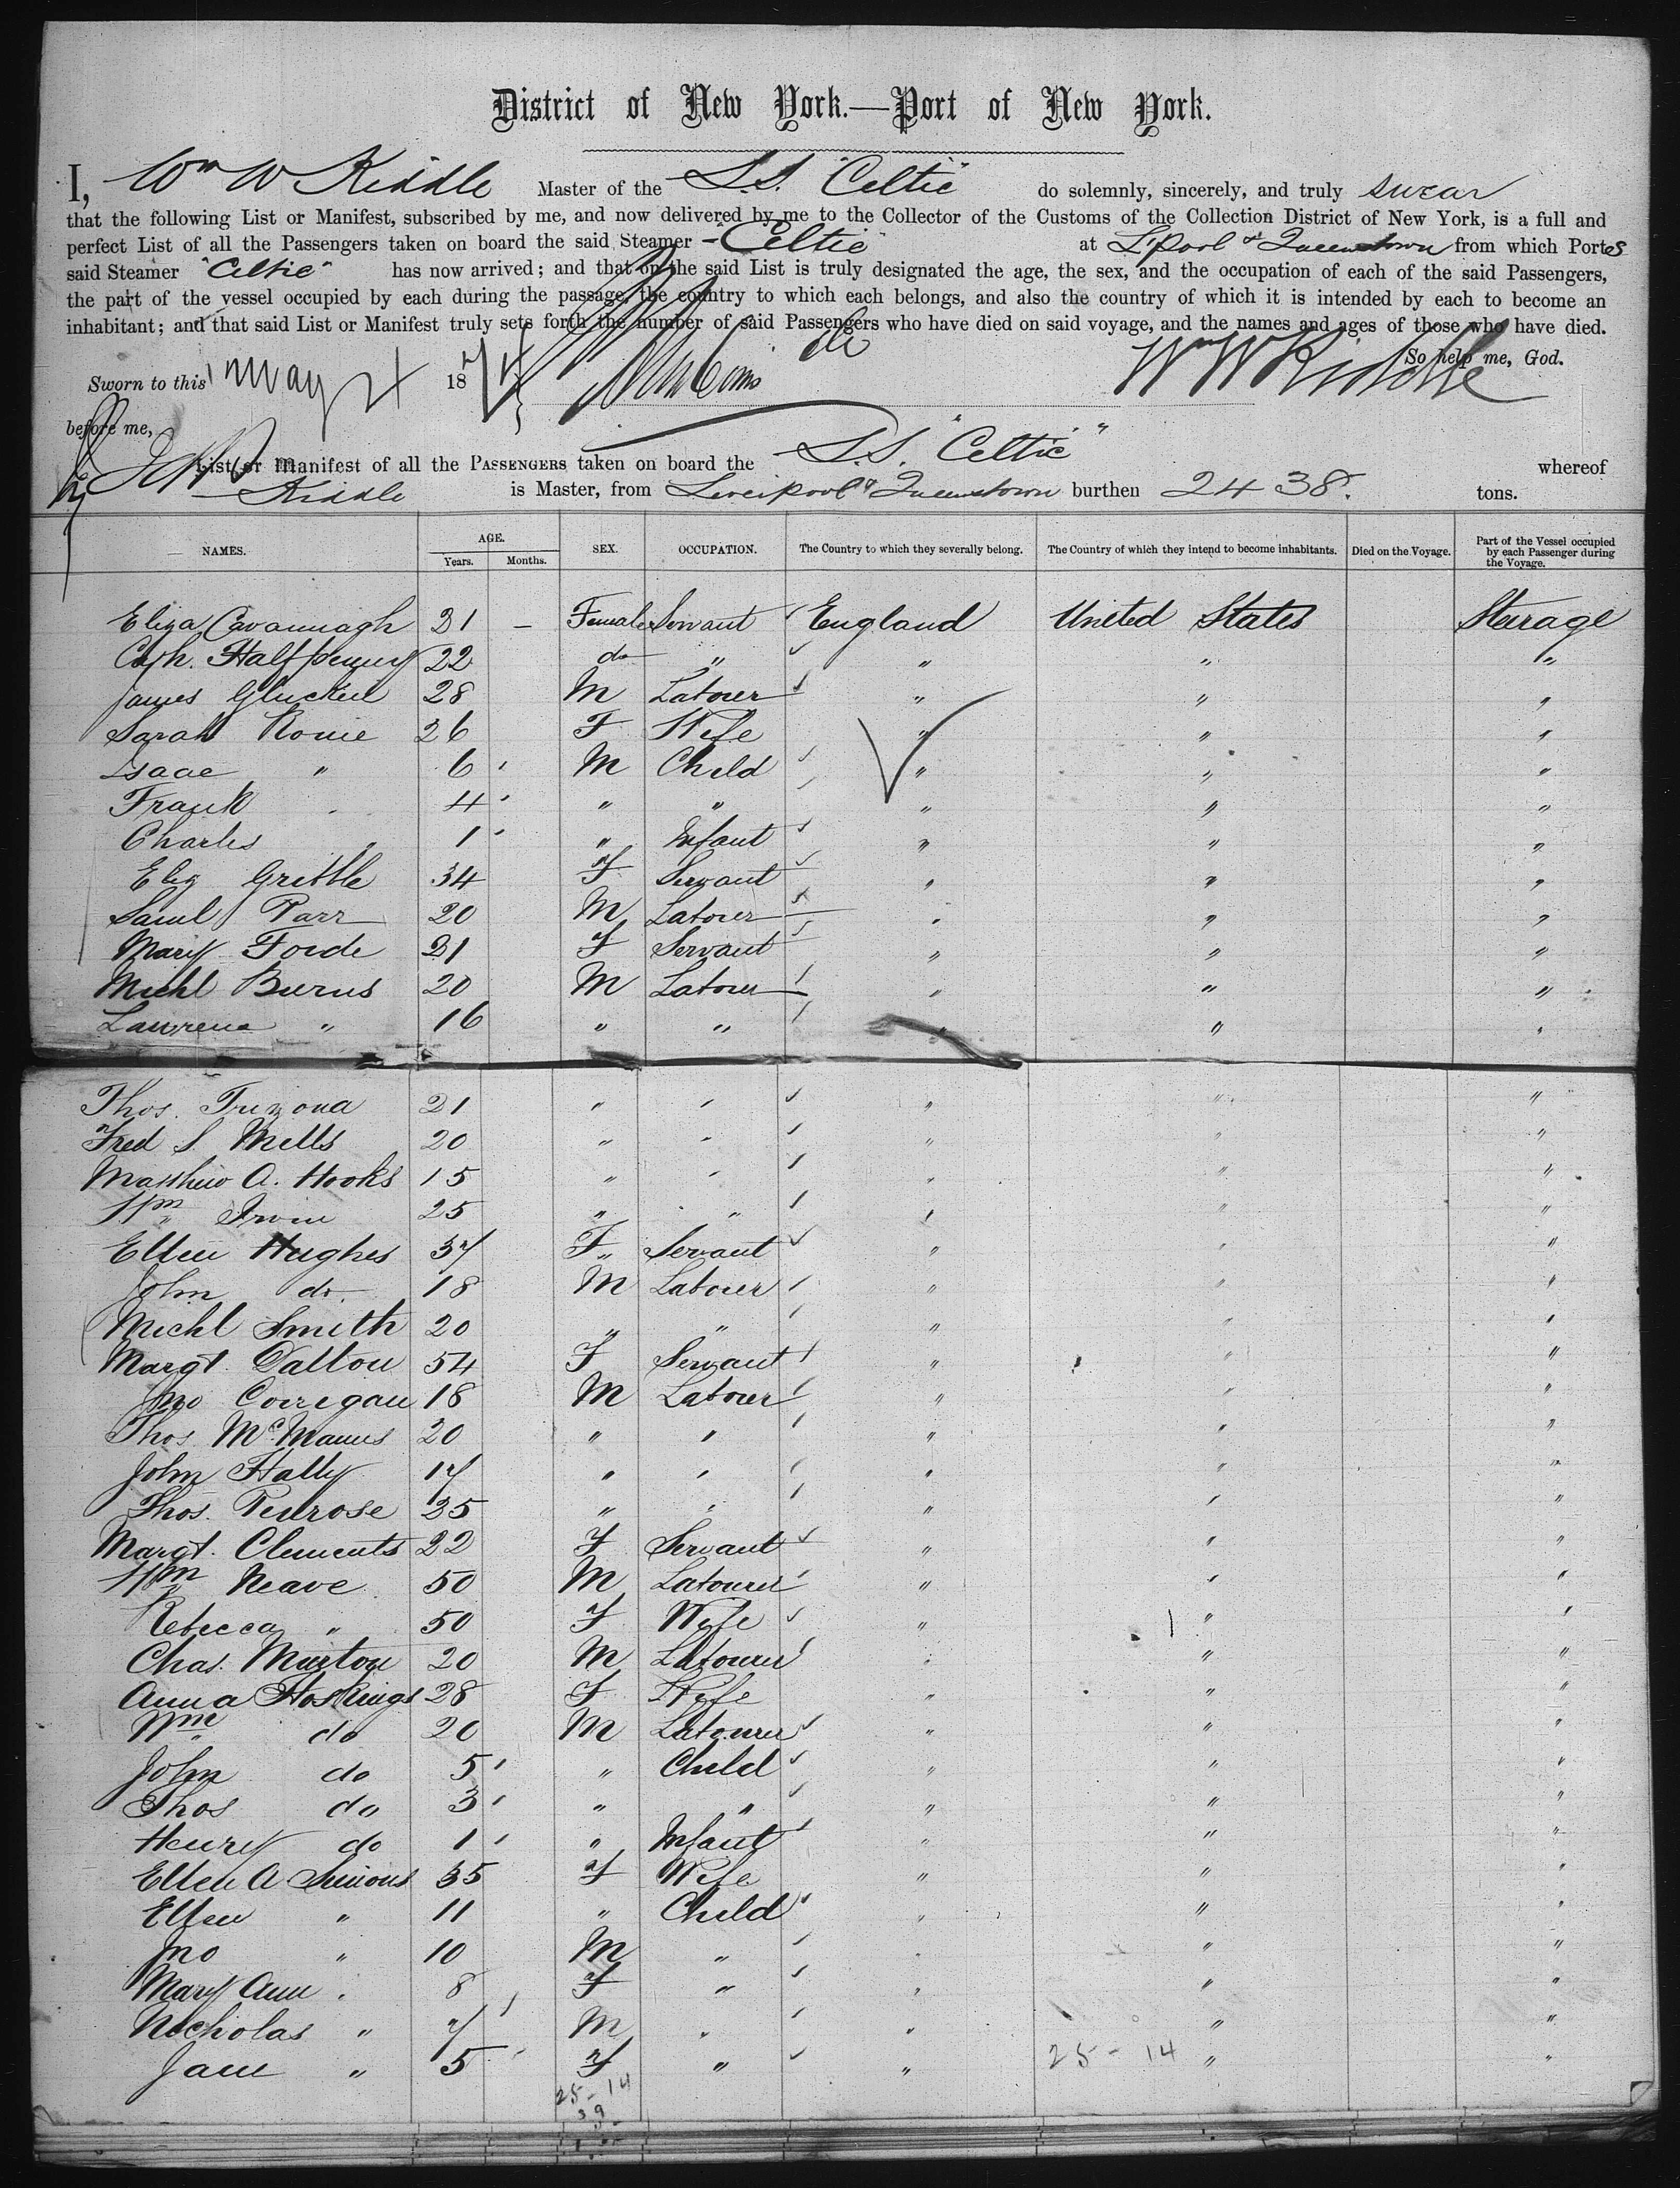 District of New York.—Port of New York.
I, Wm W Kiddle Master of the S.S. "Celtic" do solemnly, sincerely, and truly swear
that the following List or Manifest, subscribed by me, and now delivered by me to the Collector of the Customs of the Collection District of New York, is a full and
perfect List of all the Passengers taken on board the said Steamer "Celtic" at L'pool & Queenstown from which Ports
said Steamer "Celtic" has now arrived; and that on the said List is truly designated the age, the sex, and the occupation of each of the said Passengers,
the part of the vessel occupied by each during the passage, the country to which each belongs, and also the country of which it is intended by each to become an
inhabitant; and that said List or Manifest truly sets forth the number of said Passengers who have died on said voyage, and the names and ages of those who have died.
So help me, God.
Sworn to this May 4 1874 Wm W Kiddle
before me,
List or Manifest of all the PASSENGERS taken on board the S.S. "Celtic" whereof
Kiddle is Master, from Liverpool & Queenstown burthen 2438. tons.
NAMES. AGE. Years. Months. SEX. OCCUPATION. The Country to which they severally belong. The Country of which they intend to become inhabitants. Died on the Voyage. Part of the Vessel occupied by each Passenger during the Voyage.
Eliza Cavannagh 21 – Female Servant England United States Steerage
Cath. Halfpenny 22 do " " " "
James 28 M Labourer " " "
Sarah 26 F Wife " " "
Isaac " 6 M Child " " "
Frank 4 " " " " "
Charles " 1 " Infant " " "
Eliz Gribble 34 F Servant " " "
Saml Parr 20 M Labourer " " "
Mary Forde 21 F Servant " " "
Michl Burns 20 M Labourer " " "
Lawrence " 16 " " " " "
Thos. 21 " " " " "
Fred S. Mills 20 " " " " "
Matthew A. Hooks 15 " " " " "
Wm Irwin 25 " " " " "
Ellen Hughes 37 F Servant " " "
John do. 18 M Labourer " " "
Michl Smith 20 " " " " "
Margt. Dalton 54 F Servant " " "
Jno Corregan 18 M Labourer " " "
Thos. McManus 20 " " " " "
John Hally 17 " " " " "
Thos. Penrose 25 " " " " "
Margt. Clements 22 F Servant " " "
Wm Neave 50 M Labourer " " "
Rebecca " 50 F Wife " " "
Chas. 20 M Labourer " " "
Anna Hoskings 28 F Wife " " "
Wm do 20 M Labourer " " "
John do 5 " Child " " "
Thos do 3 " " " " "
Henry do 1 " Infant " " "
Ellen A Simons 35 F Wife " " "
Ellen " 11 " Child " " "
Jno " 10 M " " " "
Mary Ann " 8 F " " " "
Nicholas " 7 M " " " "
Jane " 5 F " " 25 – 14 " "
25 – 14
39